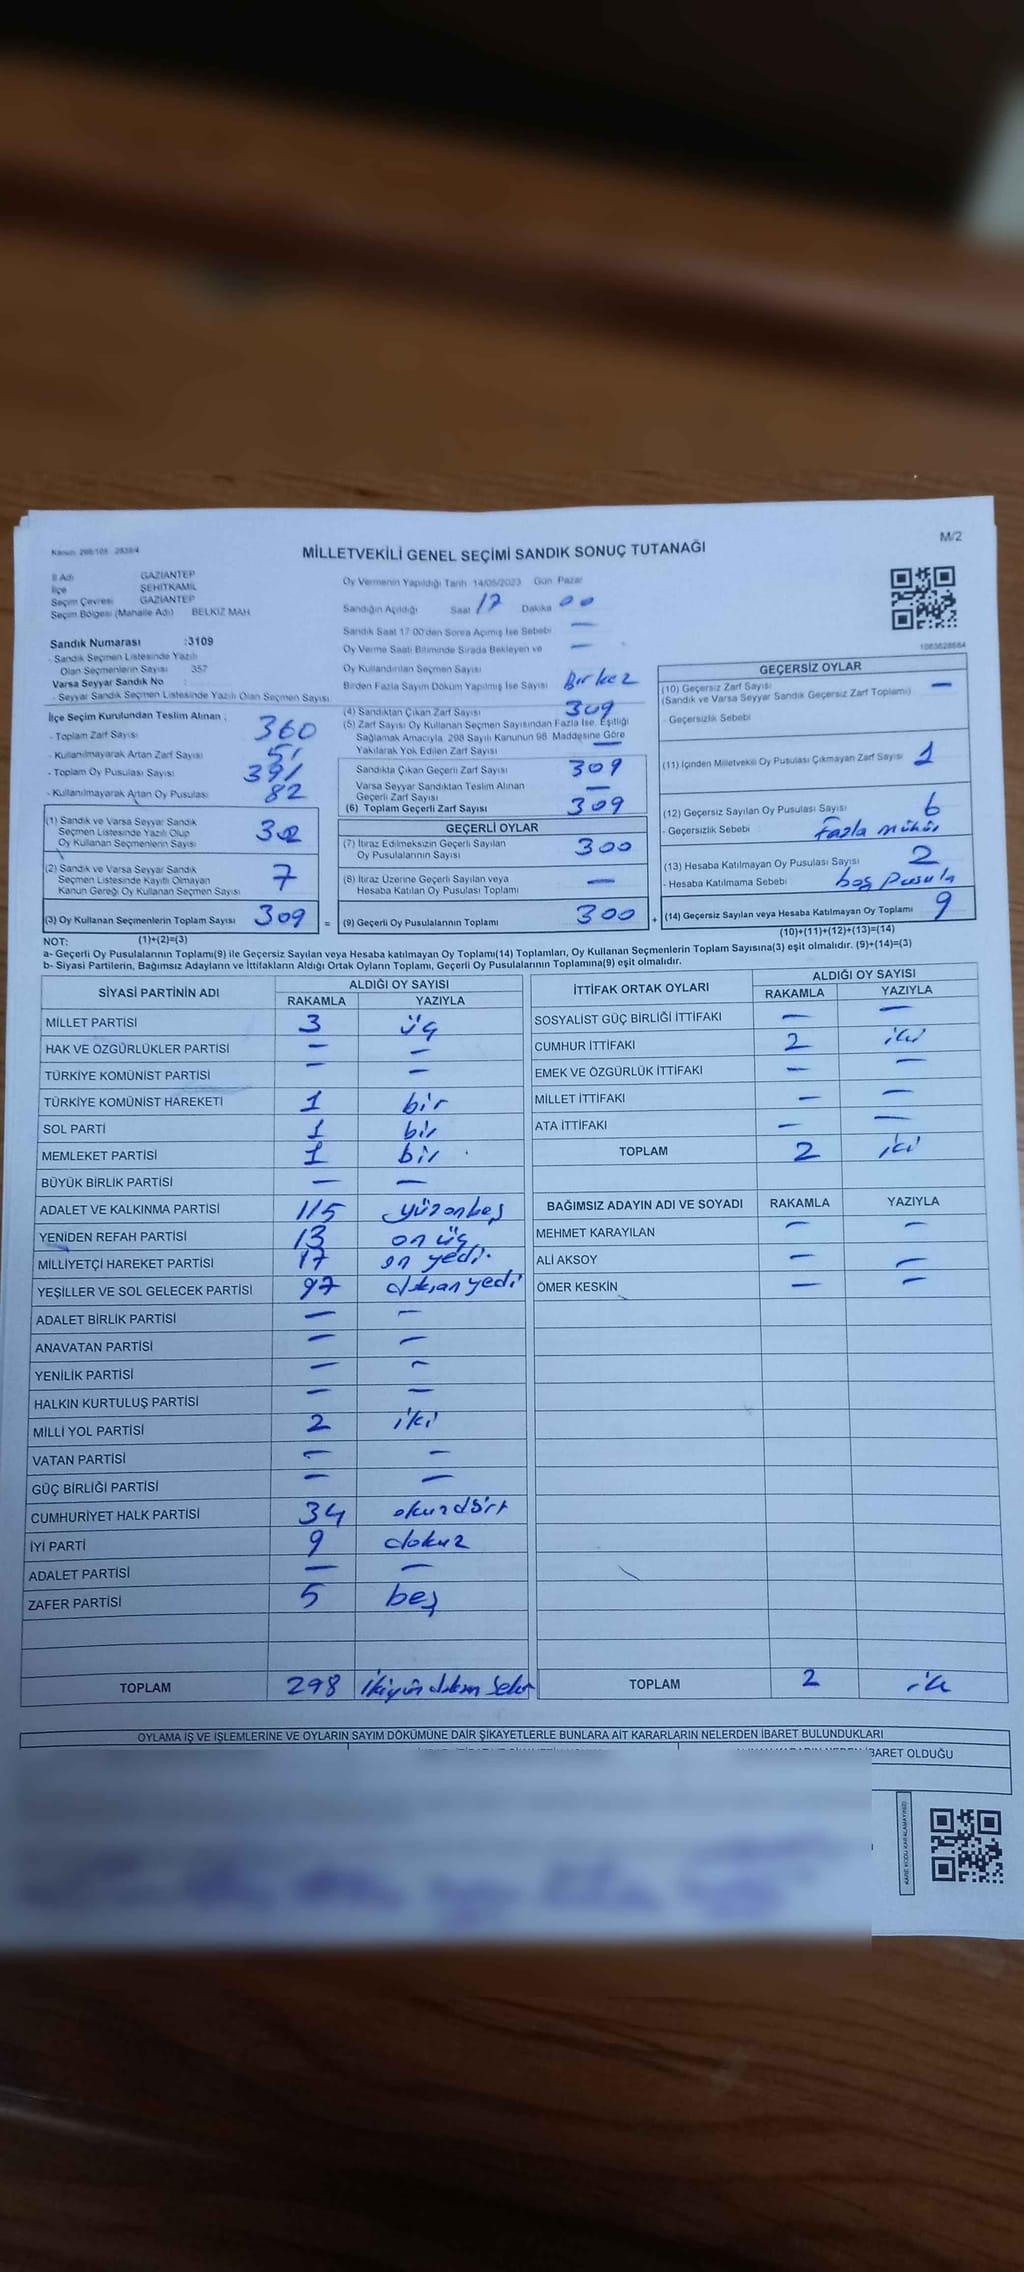 Kanun: 298/105 2839/4
MİLLETVEKİLİ GENEL SEÇİMİ SANDIK SONUÇ TUTANAĞI
M/2
İl Adı GAZİANTEP
İlçe ŞEHİTKAMİL
Seçim Çevresi GAZİANTEP
Seçim Bölgesi (Mahalle Adı) BELKIZ MAH
Sandık Numarası :3109
- Sandık Seçmen Listesinde Yazılı
Olan Seçmenlerin Sayısı : 357
Varsa Seyyar Sandık No :
- Seyyar Sandık Seçmen Listesinde Yazılı Olan Seçmen Sayısı
İlçe Seçim Kurulundan Teslim Alınan ;
- Toplam Zarf Sayısı 360
- Kullanılmayarak Artan Zarf Sayısı 51
- Toplam Oy Pusulası Sayısı 391
- Kullanılmayarak Artan Oy Pusulası 82
(1) Sandık ve Varsa Seyyar Sandık
Seçmen Listesinde Yazılı Olup
Oy Kullanan Seçmenlerin Sayısı 302
(2) Sandık ve Varsa Seyyar Sandık
Seçmen Listesinde Kayıtlı Olmayan
Kanun Gereği Oy Kullanan Seçmen Sayısı 7
(3) Oy Kullanan Seçmenlerin Toplam Sayısı 309 =
Oy Vermenin Yapıldığı Tarih 14/05/2023 Gün Pazar
Sandığın Açıldığı Saat 17 Dakika 00
Sandık Saat 17 00'den Sonra Açılmış İse Sebebi —
Oy Verme Saati Bitiminde Sırada Bekleyen ve —
Oy Kullandırılan Seçmen Sayısı
Birden Fazla Sayım Döküm Yapılmış İse Sayısı Bir kez
(4) Sandıktan Çıkan Zarf Sayısı 309
(5) Zarf Sayısı Oy Kullanan Seçmen Sayısından Fazla İse, Eşitliği
Sağlamak Amacıyla, 298 Sayılı Kanunun 98. Maddesine Göre
Yakılarak Yok Edilen Zarf Sayısı —
Sandıkta Çıkan Geçerli Zarf Sayısı 309
Varsa Seyyar Sandıktan Teslim Alınan
Geçerli Zarf Sayısı —
(6) Toplam Geçerli Zarf Sayısı 309
GEÇERLİ OYLAR
(7) İtiraz Edilmeksizin Geçerli Sayılan
Oy Pusulalarının Sayısı 300
(8) İtiraz Üzerine Geçerli Sayılan veya
Hesaba Katılan Oy Pusulası Toplamı —
(9) Geçerli Oy Pusulalarının Toplamı 300 +
1083628664
GEÇERSİZ OYLAR
(10) Geçersiz Zarf Sayısı —
(Sandık ve Varsa Seyyar Sandık Geçersiz Zarf Toplamı)
- Geçersizlik Sebebi
(11) İçinden Milletvekili Oy Pusulası Çıkmayan Zarf Sayısı 1
(12) Geçersiz Sayılan Oy Pusulası Sayısı 6
- Geçersizlik Sebebi Fazla mühür
(13) Hesaba Katılmayan Oy Pusulası Sayısı 2
- Hesaba Katılmama Sebebi boş pusula
(14) Geçersiz Sayılan veya Hesaba Katılmayan Oy Toplamı 9
NOT: (1)+(2)=(3) (10)+(11)+(12)+(13)=(14)
a- Geçerli Oy Pusulalarının Toplamı(9) ile Geçersiz Sayılan veya Hesaba katılmayan Oy Toplamı(14) Toplamları, Oy Kullanan Seçmenlerin Toplam Sayısına(3) eşit olmalıdır. (9)+(14)=(3)
b- Siyasi Partilerin, Bağımsız Adayların ve İttifakların Aldığı Ortak Oyların Toplamı, Geçerli Oy Pusulalarının Toplamına(9) eşit olmalıdır.
SİYASİ PARTİNİN ADI ALDIĞI OY SAYISI
RAKAMLA YAZIYLA
MİLLET PARTİSİ 3 üç
HAK VE ÖZGÜRLÜKLER PARTİSİ — —
TÜRKİYE KOMÜNİST PARTİSİ — —
TÜRKİYE KOMÜNİST HAREKETİ 1 bir
SOL PARTİ 1 bir
MEMLEKET PARTİSİ 1 bir
BÜYÜK BİRLİK PARTİSİ — —
ADALET VE KALKINMA PARTİSİ 115 yüzonbeş
YENİDEN REFAH PARTİSİ 13 on üç
MİLLİYETÇİ HAREKET PARTİSİ 17 on yedi
YEŞİLLER VE SOL GELECEK PARTİSİ 97 doksanyedi
ADALET BİRLİK PARTİSİ — —
ANAVATAN PARTİSİ — —
YENİLİK PARTİSİ — —
HALKIN KURTULUŞ PARTİSİ — —
MİLLİ YOL PARTİSİ 2 iki
VATAN PARTİSİ — —
GÜÇ BİRLİĞİ PARTİSİ — —
CUMHURİYET HALK PARTİSİ 34 otuzdört
İYİ PARTİ 9 dokuz
ADALET PARTİSİ — —
ZAFER PARTİSİ 5 beş
TOPLAM 298
İTTİFAK ORTAK OYLARI ALDIĞI OY SAYISI
RAKAMLA YAZIYLA
SOSYALİST GÜÇ BİRLİĞİ İTTİFAKI — —
CUMHUR İTTİFAKI 2 iki
EMEK VE ÖZGÜRLÜK İTTİFAKI — —
MİLLET İTTİFAKI — —
ATA İTTİFAKI — —
TOPLAM 2 iki
BAĞIMSIZ ADAYIN ADI VE SOYADI RAKAMLA YAZIYLA
MEHMET KARAYILAN — —
ALİ AKSOY — —
ÖMER KESKİN — —
TOPLAM 2 iki
OYLAMA İŞ VE İŞLEMLERİNE VE OYLARIN SAYIM DÖKÜMÜNE DAİR ŞİKAYETLERLE BUNLARA AİT KARARLARIN NELERDEN İBARET BULUNDUKLARI
İBARET OLDUĞU
KARE KODU KARALAMAYINIZ!